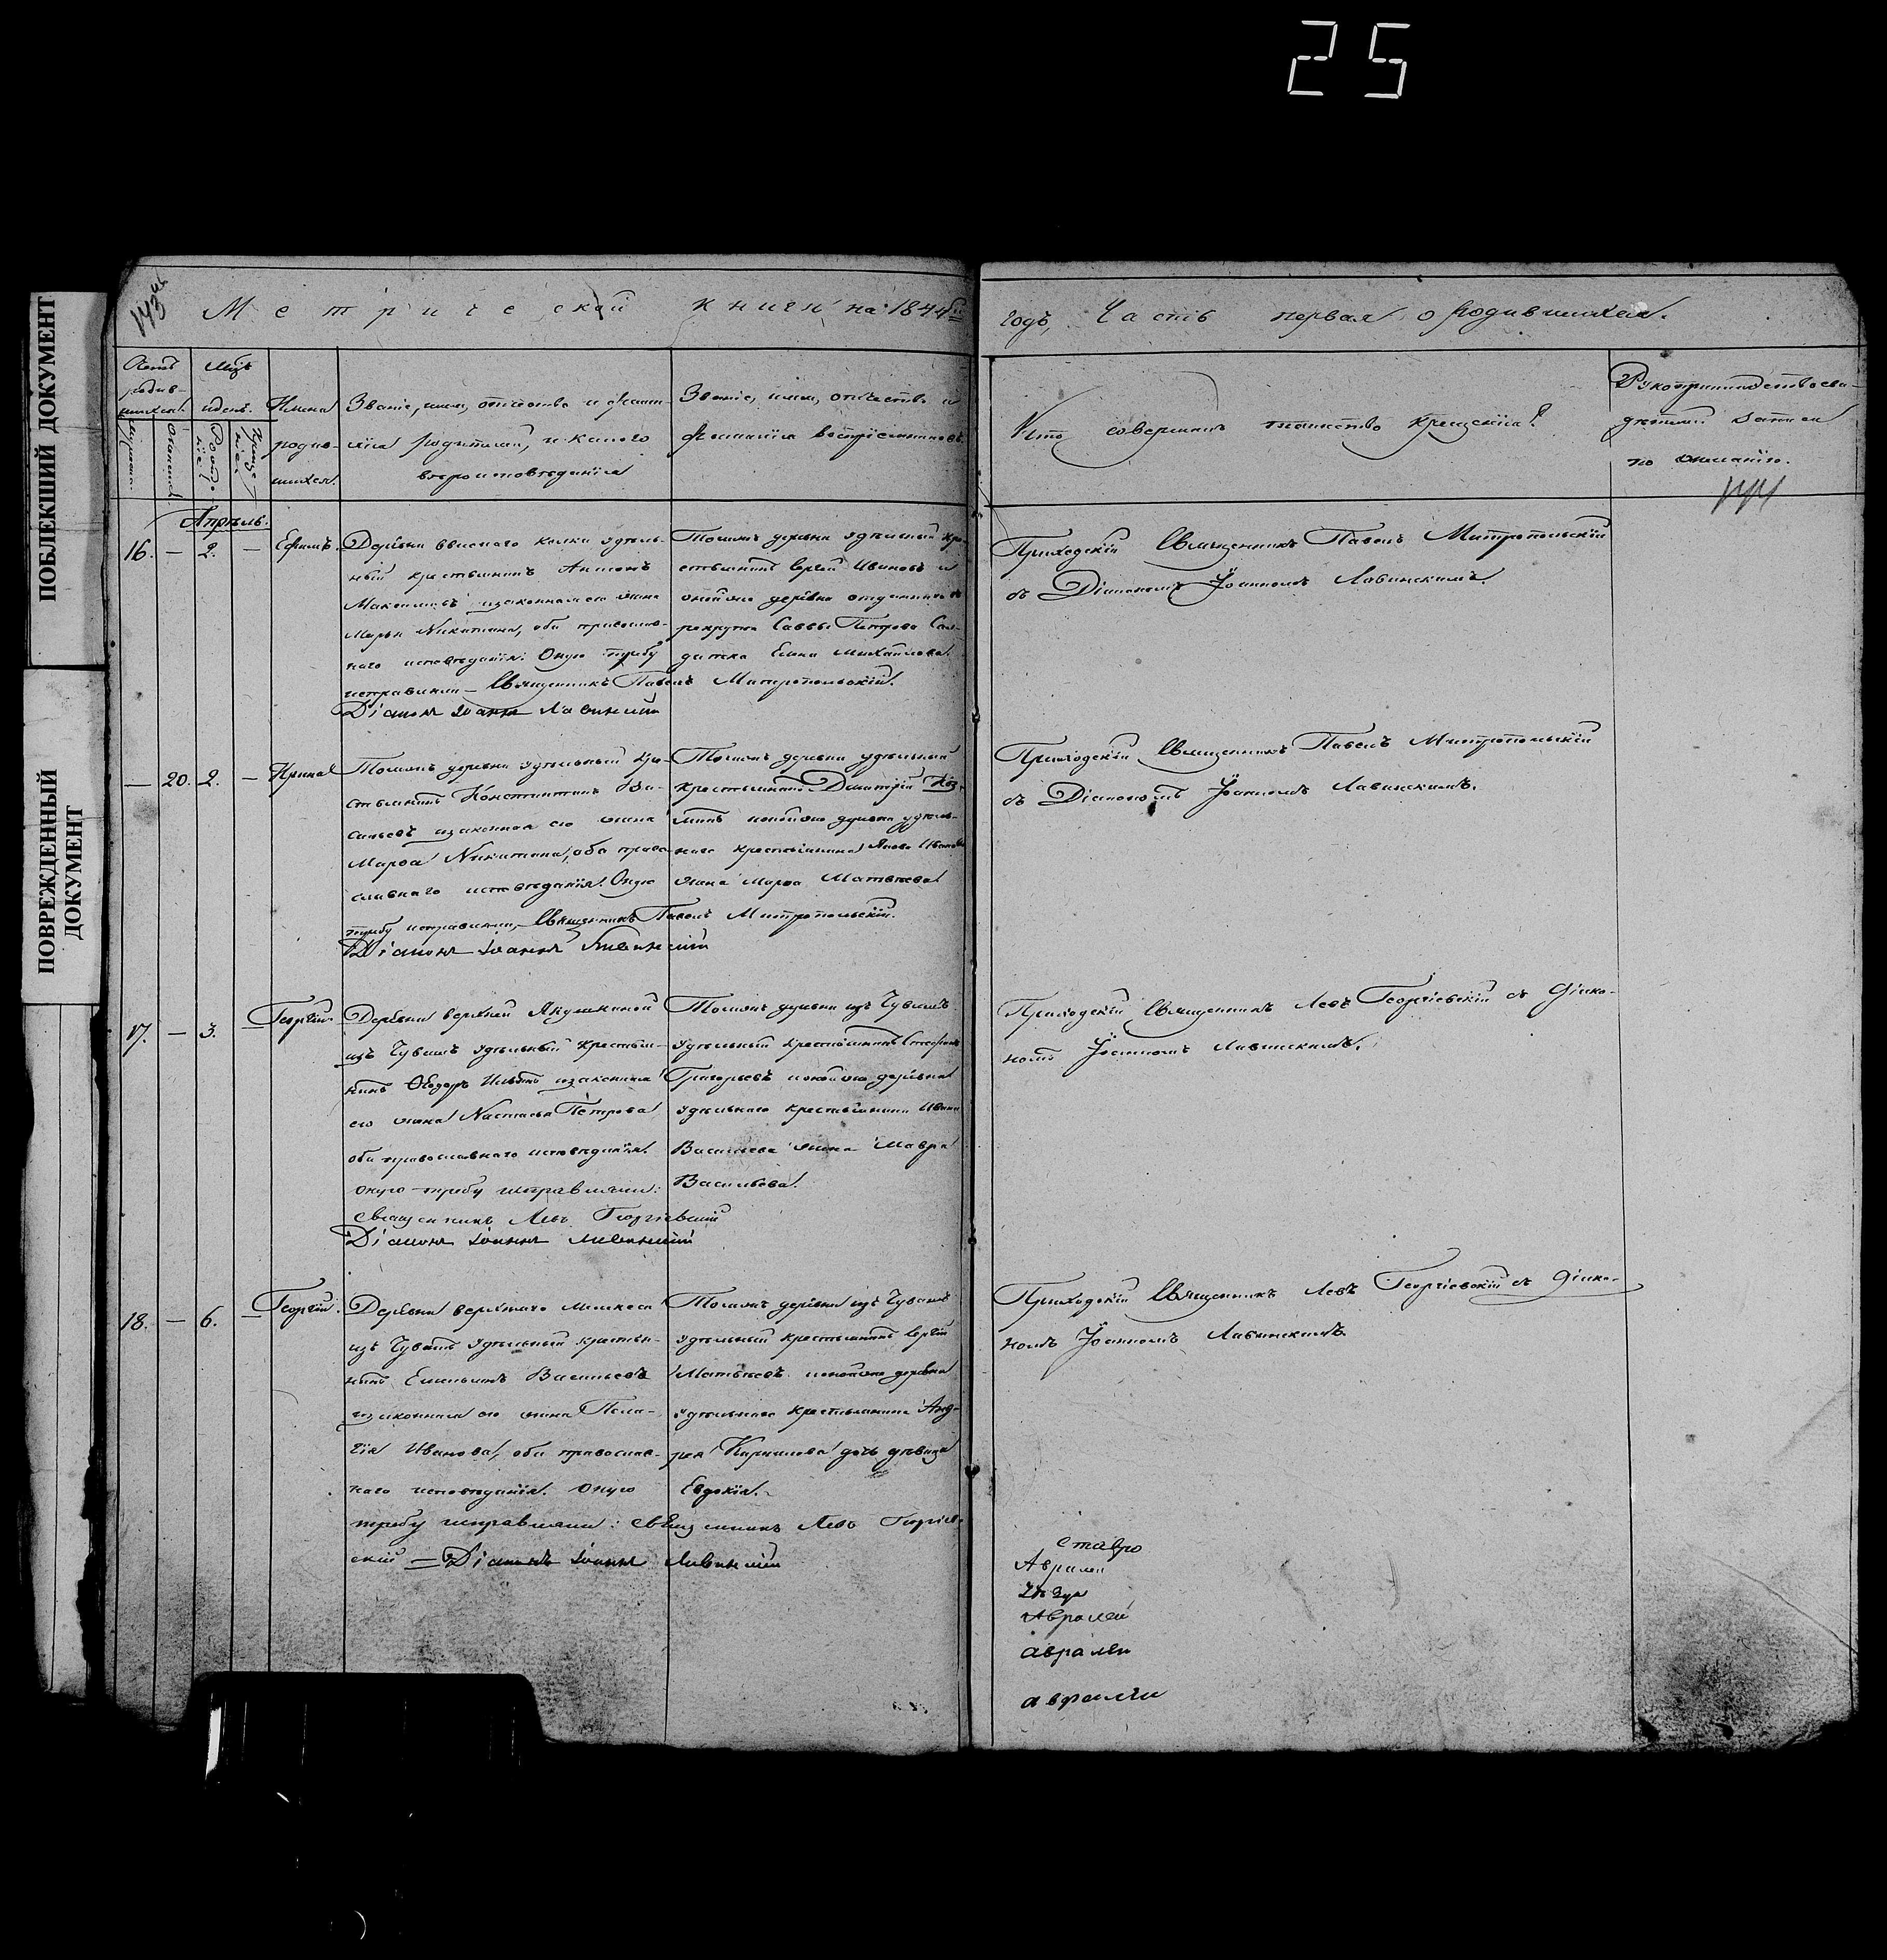 25
ПОБЛЕКШИЙ ДОКУМЕНТ
ПОВРЕЖДЕННЫЙ
ДОКУМЕНТ
Метрической книги на 1844й
годъ, Часть первая о родившихся.
Мѣсяцъ
и день.
Имена
родив-
шихся.
Званіе, имя, отчество и фами-
лія родителей, и какого
вѣроисповѣданія
Званіе, имя, отчество и
фамилія воспріемниковъ.
Кто совершалъ таинство крещенія?
Рукоприкладство сви-
дѣтелей записи
по желанію.
144
Апрѣль.
16. — 2. — Ефимъ.
Деревни колка удѣль-
ный крестьянинъ Антонъ
Максимовъ и законная его жена
Марья Никитина, оба православ-
наго исповѣданія. Оную требу
исправляли — Священникъ Павелъ Митропольскій.
Діаконъ Іоаннъ Лавинскій
Тоежъ деревни удѣльный кре-
стьянинъ Сергей Ивановъ и
онойже деревни отданнаго въ
рекруты Саввы Петрова Сол-
датка Елена Михайлова.
Приходскій Священникъ Павелъ Митропольскій
съ Діакономъ Іоанномъ Лавинскимъ
— 20. 2. — Ирина
Тоежъ деревни удѣльный кре-
стьянинъ Константинъ Ва-
сильевъ и законная его жена
Марѳа Никитина, оба право-
славнаго исповѣданія. Оную
требу исправляли, Священникъ Павелъ Митропольскій.
Діаконъ Іоаннъ Лавинскій
Тоежъ деревни удѣльный
крестьянинъ Димитрій Коз-
минъ и онойже деревни удѣль-
наго крестьянина Якова Иванова
жена Марѳа Матвѣева
Приходскій Священникъ Павелъ Митропольскій
съ Діакономъ Іоанномъ Лавинскимъ.
17. — 3. — Георгій.
Деревни верхней Якушкиной
изъ Чувашъ удѣльный крестья-
нинъ Ѳеодоръ Ильинъ и законная
его жена Настасья Петрова
оба православнаго исповѣданія.
оную требу исправляли:
священникъ Левъ Георгіевскій
Діаконъ Іоаннъ Лавинскій
Тоежъ деревни изъ Чувашъ
удѣльный крестьянинъ Стефанъ
Григорьевъ и онойже деревни
удѣльнаго крестьянина Ивана
Васильева жена Мавра
Васильева.
Приходскій Священникъ Левъ Георгіевскій съ діако-
номъ Іоанномъ Лавинскимъ.
18. — 6. — Георгій.
Деревни верхняго
изъ Чувашъ удѣльный крестья-
нинъ Емельянъ Васильевъ
и законная его жена Пела-
гія Иванова, оба православ-
наго исповѣданія. Оную
требу исправляли: священникъ Левъ Георгіев-
скій — Діаконъ Іоаннъ Лавинскій
Тоежъ деревни изъ Чувашъ
удѣльный крестьянинъ Сергѣй
Матвѣевъ и онойже деревни
удѣльнаго крестьянина Анд-
рея Кирилова дочь дѣвица
Евдокія.
Приходскій Священникъ Левъ Георгіевскій съ діако-
номъ Іоанномъ Лавинскимъ
ставро